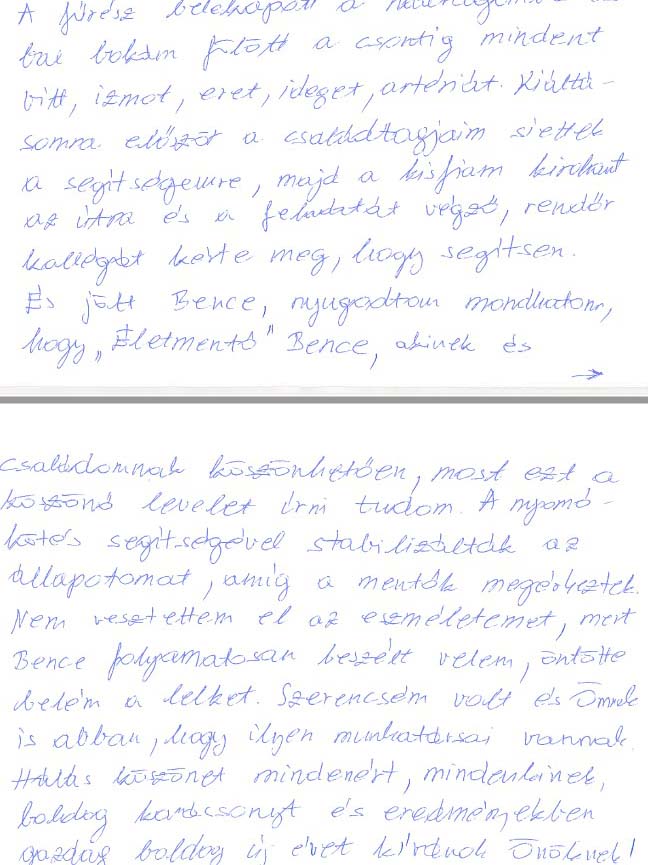 A fűrész belekapott a
bal bokám fölött a csontig mindent
vitt, izmot, eret, ideget, artériát. Kiáltá-
somra először a családtagjaim siettek
a segítségemre, majd a kisfiam kirohant
az útra és a feladatát végző, rendőr
kollégát kérte meg, hogy segítsen.
És jött Bence, nyugodtan mondhatom,
hogy „Életmentő" Bence, akinek és
→
családomnak köszönhetően, most ezt a
köszönő levelet írni tudom. A nyomó-
kötés segítségével stabilizálták az
állapotomat, amíg a mentők megérkeztek.
Nem vesztettem el az eszméletemet, mert
Bence folyamatosan beszélt velem, öntötte
belém a lelket. Szerencsém volt és Önnek
is abban, hogy ilyen munkatársai vannak.
Hálás köszönet mindenért, mindenkinek,
boldog karácsonyt és eredményekben
gazdag boldog új évet kívánok Önöknek!